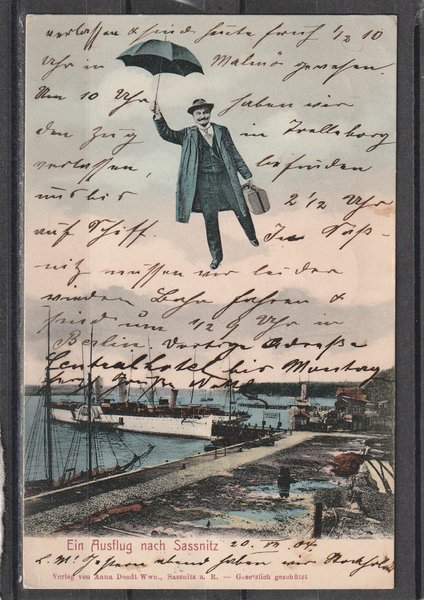 verlassen & sind heute früh 1/2 10
Uhr in Malmö gewesen.
Um 10 Uhr haben wir
den Zug in Trelleborg
verlassen, befinden
uns bis 2 1/2 Uhr
auf Schiff. In Saß-
nitz müssen wir leider
wieder Bahn fahren &
sind um 1/2 9 Uhr in
Berlin Adreße
Centralhotel bis Montag
Ein Ausflug nach Sassnitz 20. VI 04.
abend haben wir Stockholm
Verlag von Anna Doodt Wwe., Sassnitz a. R. — Gesetzlich geschützt